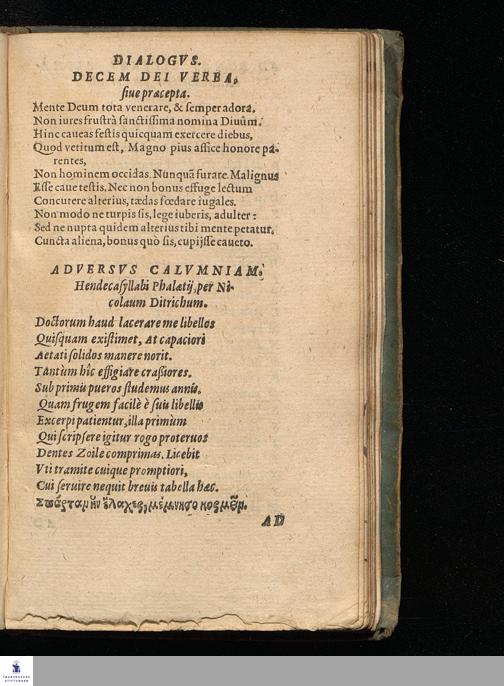 DIALOGVS.
DECEM DEI VERBA,
siue præcepta.
Mente Deum tota venerare, & semper adora.
Non iures frustrà sanctissima nomina Diuûm.
Hinc caueas festis quicquam exercere diebus,
Quod vetitum est, Magno pius affice honore pa-
rentes,
Non hominem occidas. Nunquã furare. Malignus
Esse caue testis. Nec non bonus effuge lectum
Concurere alterius, tædas fœdare iugales.
Non modo ne turpis sis, lege iuberis, adulter:
Sed ne nupta quidem alterius tibi mente petatur.
Cuncta aliena, bonus quò sis, cupijsse caueto.
ADVERSVS CALVMNIAM.
Hendecasyllabi Phalætij, per Ni-
colaum Ditrichum.
Doctorum haud lacerare me libellos
Quisquam existimet, At capaciori
Aetati solidos manere norit.
Tantùm hîc effigiare crassiores.
Sub primis pueros studemus annis,
Quam frugem facilè è suis libellis
Excerpi patientur, illa primùm
Qui scripsere igitur rogo proteruos
Dentes Zoile comprimas. Licebit
Vti tramite cuique promptiori,
Cui seruire nequit breuis tabella hæc.
AD
FRANCKESCHE
STIFTUNGEN